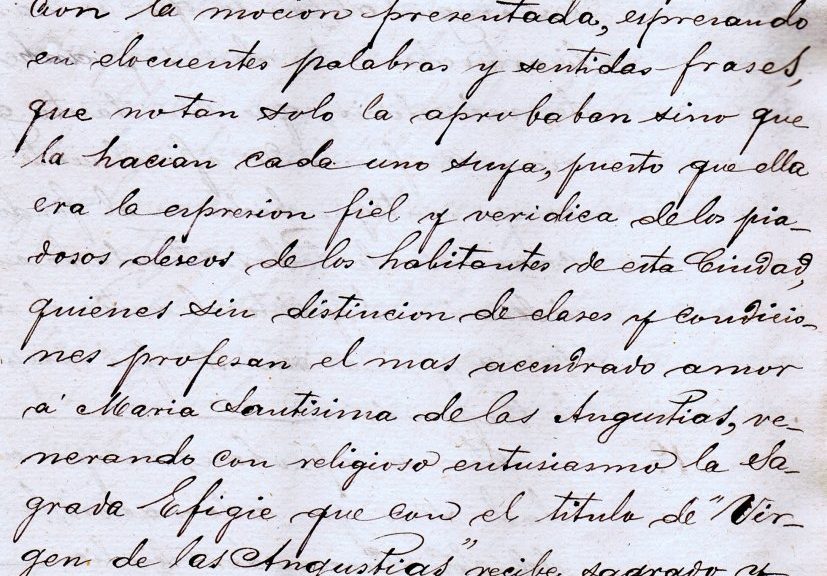 con la mocion presentada, espresando
en elocuentes palabras y sentidas frases,
que no tan solo la aprobaban sino que
la hacian cada uno suya, puesto que ella
era la espresion fiel y veridica de los pia-
dosos deseos de los habitantes de esta Ciudad,
quienes sin distincion de clases y condicio-
nes profesan el mas acendrado amor
á Maria Santisima de las Angustias, ve-
nerando con religioso entusiasmo la Sa-
grada Efigie que con el titulo de "Vir-
gen de las Angustias" recibe sagrado y